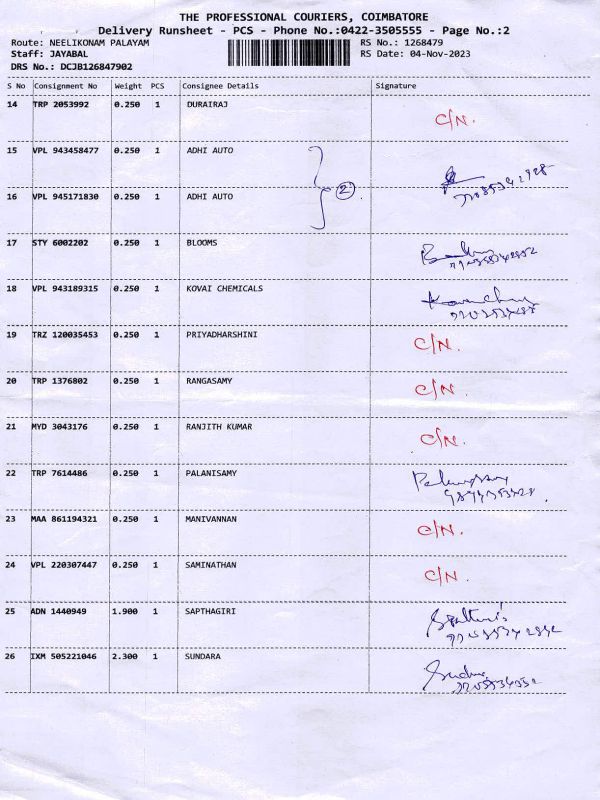 THE PROFESSIONAL COURIERS, COIMBATORE
Delivery Runsheet - PCS - Phone No.:0422-3505555 - Page No.:2
Route: NEELIKONAM PALAYAM RS No.: 1268479
Staff: JAYABAL RS Date: 04-Nov-2023
DRS No.: DCJB126847902
S No Consignment No Weight PCS Consignee Details Signature
14 TRP 2053992 0.250 1 DURAIRAJ C/N.
15 VPL 943458477 0.250 1 ADHI AUTO
2
16 VPL 945171830 0.250 1 ADHI AUTO
17 STY 6002202 0.250 1 BLOOMS
18 VPL 943189315 0.250 1 KOVAI CHEMICALS
19 TRZ 120035453 0.250 1 PRIYADHARSHINI C/N.
20 TRP 1376802 0.250 1 RANGASAMY C/N.
21 MYD 3043176 0.250 1 RANJITH KUMAR C/N.
22 TRP 7614486 0.250 1 PALANISAMY
23 MAA 861194321 0.250 1 MANIVANNAN C/N.
24 VPL 220307447 0.250 1 SAMINATHAN C/N.
25 ADN 1440949 1.900 1 SAPTHAGIRI
26 IXM 505221046 2.300 1 SUNDARA